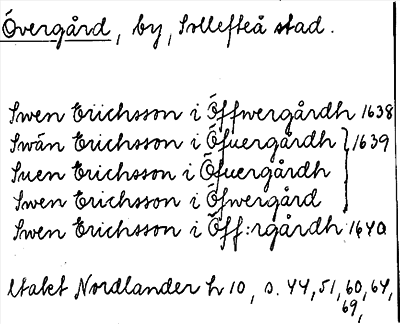 Övergård, by, Sollefteå stad.
Swen Erichsson i Öffwergårdh 1638
Swän Erichsson i Öfuergårdh } 1639
Suen Erichsson i Öfuergårdh
Swen Erichsson i Öfwergård
Swen Erichsson i Öff:rgårdh 1640
Utakt Nordlander h 10, s. 44, 51, 60, 64,
69,